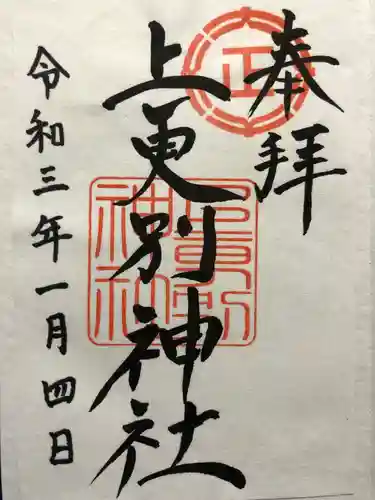 奉拝
上更別神社
令和三年一月四日
正